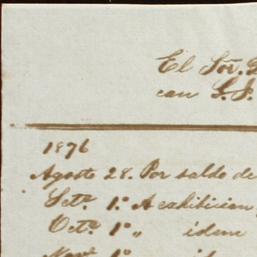 El Sor.
con
1876
Agosto 28. Por saldo de
Set.e 1.o A exhibicion
Oct.e 1.o „ idem
Nov.e 1.o